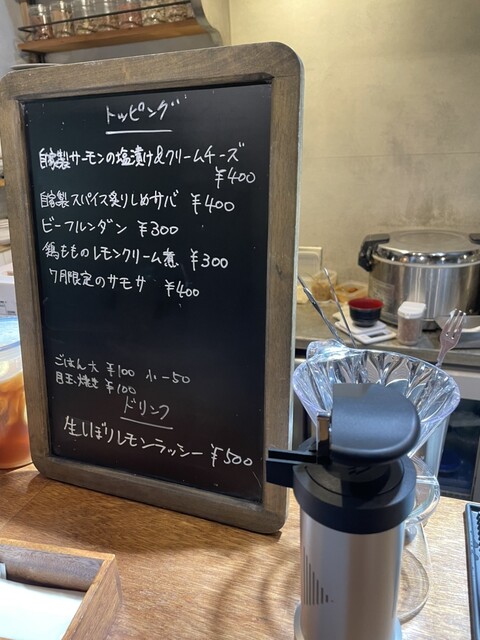 トッピング
自家製サーモンの塩漬け&クリームチーズ
¥400
自家製スパイス炙りしめサバ ¥400
ビーフルンダン ¥300
鶏もものレモンクリーム煮 ¥300
7月限定のサモサ ¥400
ごはん大 ¥100 小-50
目玉焼き ¥100
ドリンク
生しぼりレモンラッシー ¥500